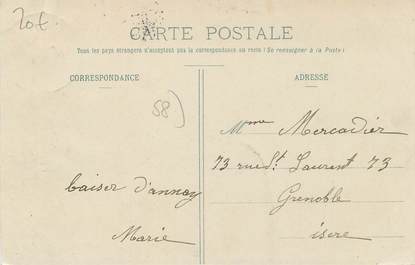 20f
CARTE POSTALE
Tous les pays étrangers n'acceptent pas la correspondance au recto (Se renseigner à la Poste)
CORRESPONDANCE
ADRESSE
58)
Mme Mercadier
73 rue St Laurent 73
Grenoble
isere
baiser d'annay
Marie